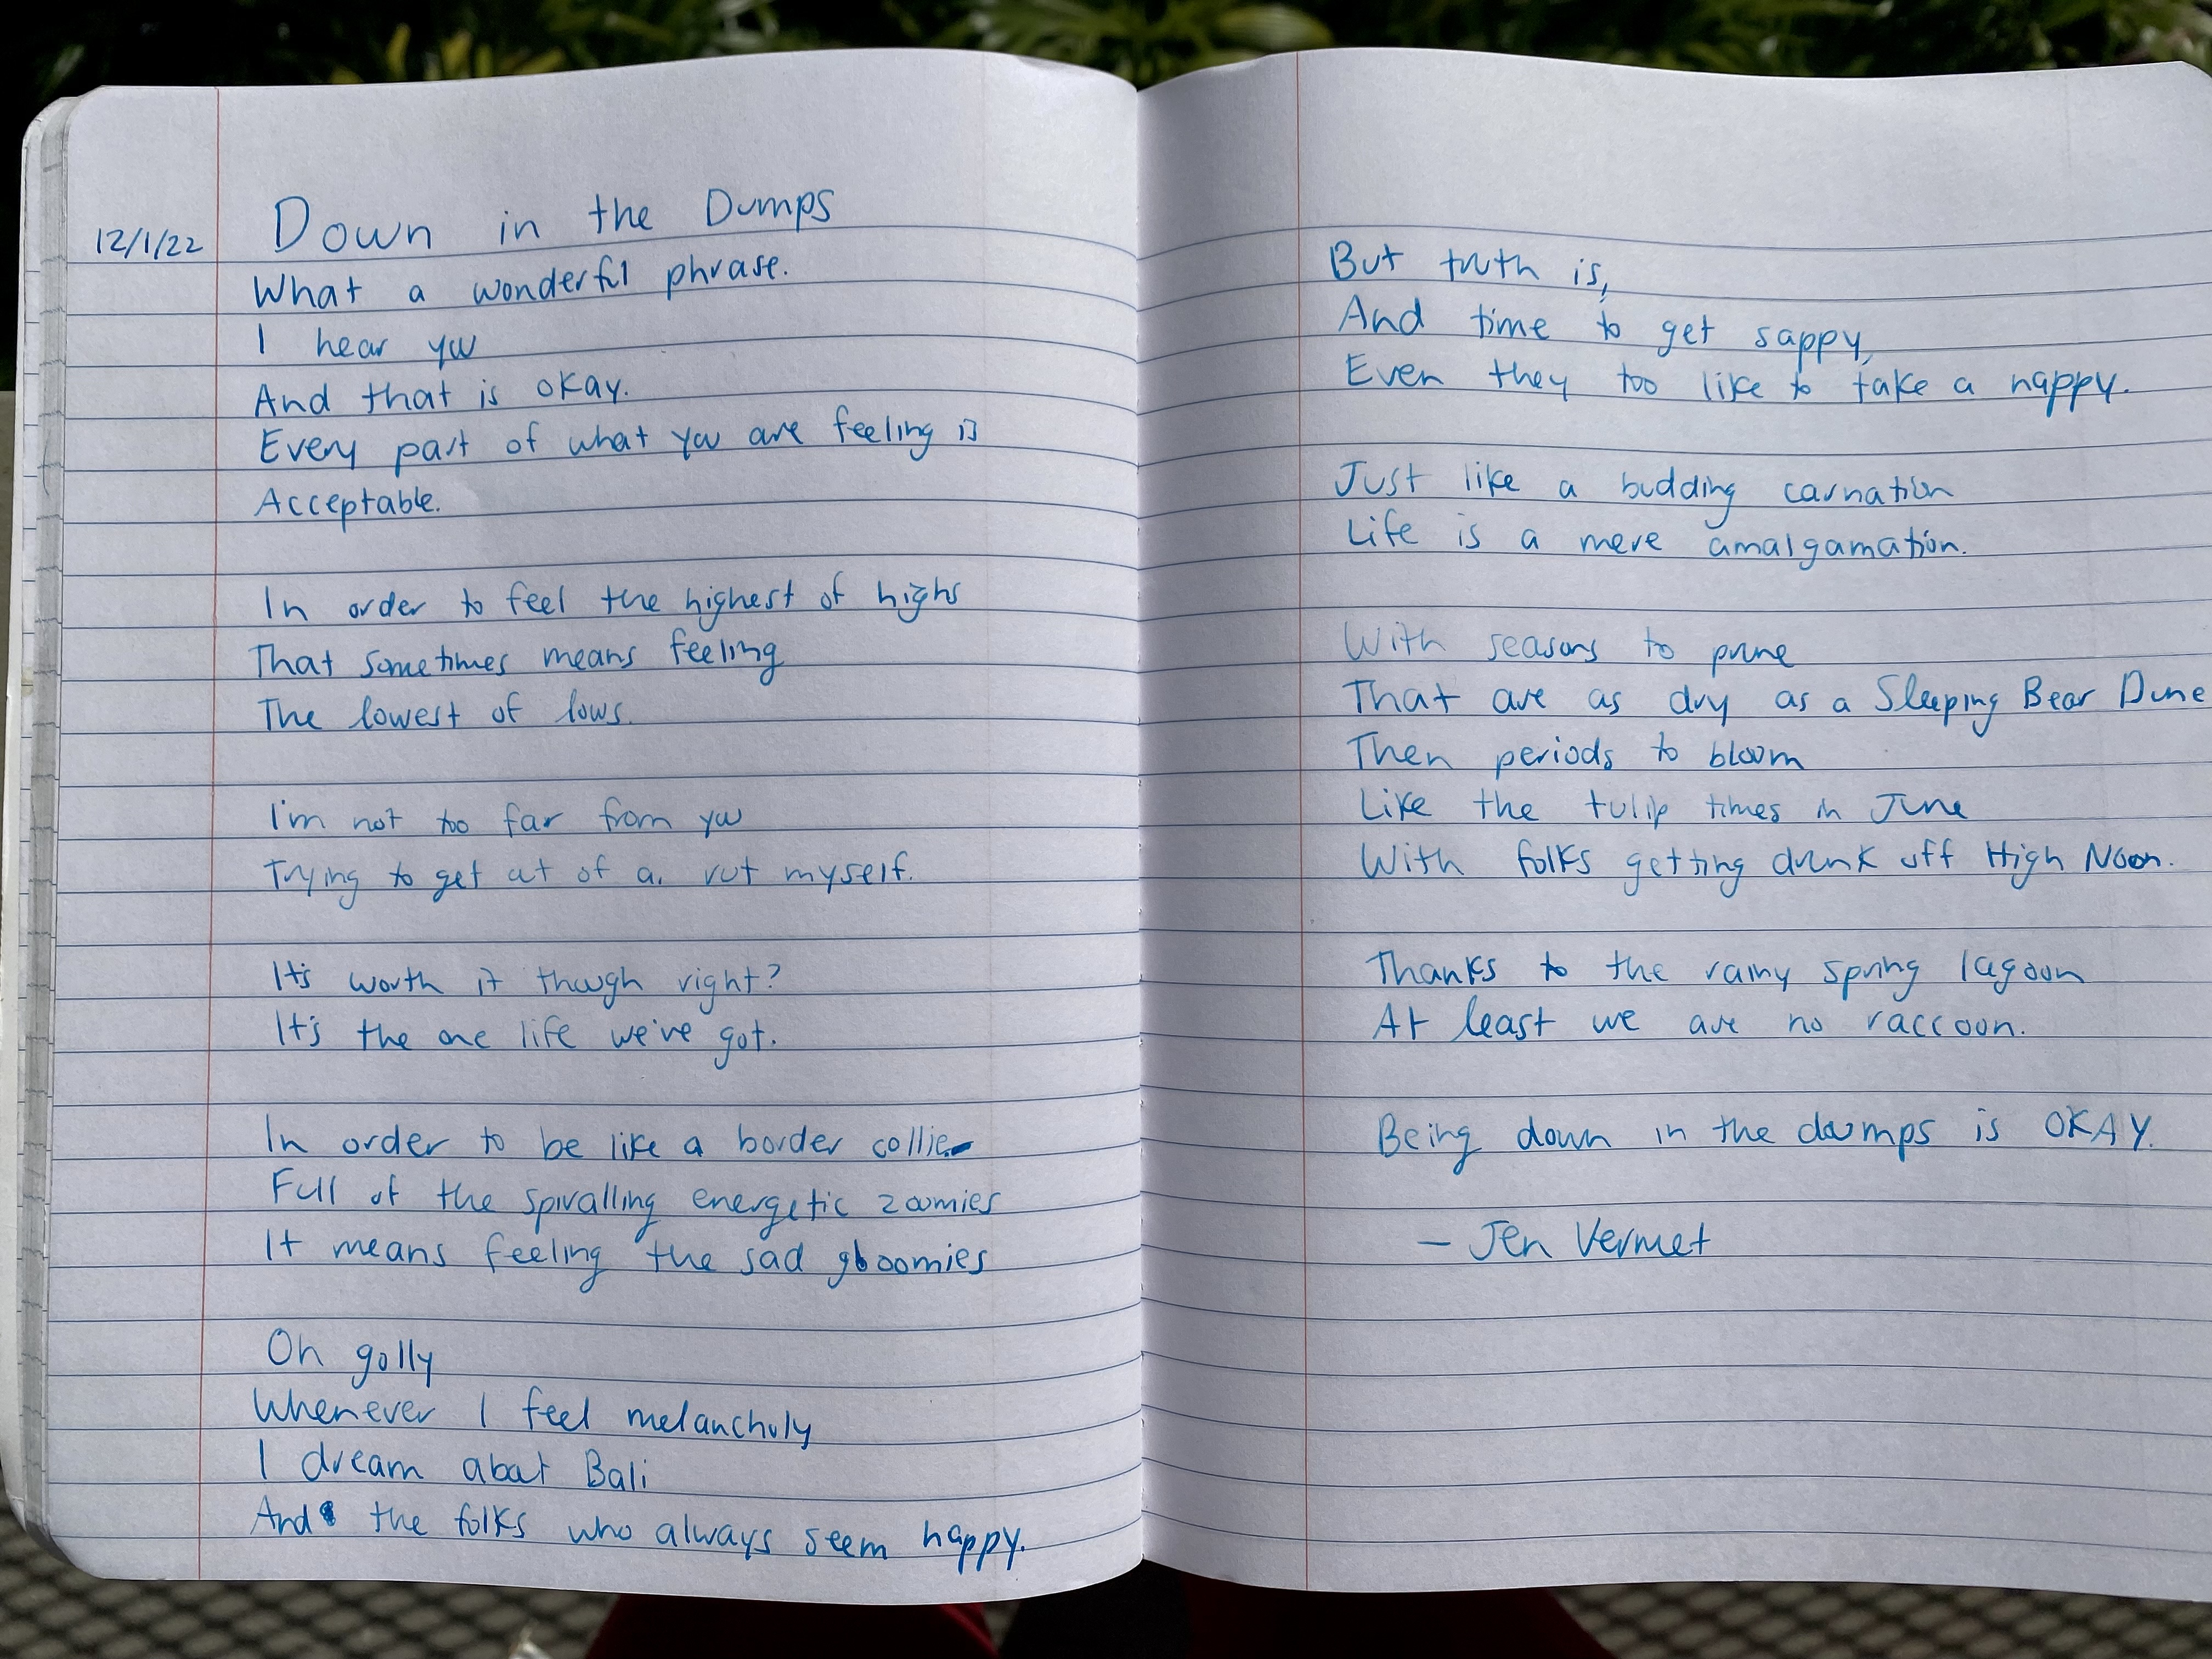 12/1/22
Down in the Dumps
What a wonderful phrase.
I hear you
And that is okay.
Every part of what you are feeling is
Acceptable.
In order to feel the highest of highs
That sometimes means feeling
The lowest of lows.
I'm not too far from you
Trying to get out of a rut myself.
It's worth it though right?
It's the one life we've got.
In order to be like a border collie
Full of the spiralling energetic zoomies
It means feeling the sad gloomies
Oh golly
Whenever I feel melancholy
I dream about Bali
And the folks who always seem happy.
But truth is,
And time to get sappy,
Even they too like to take a nappy.
Just like a budding carnation
Life is a mere amalgamation.
With seasons to prune
That are as dry as a Sleeping Bear Dune
Then periods to bloom
Like the tulip times in June
With folks getting drunk off High Noon.
Thanks to the rainy spring lagoon
At least we are no raccoon.
Being down in the dumps is OKAY.
— Jen Vermet